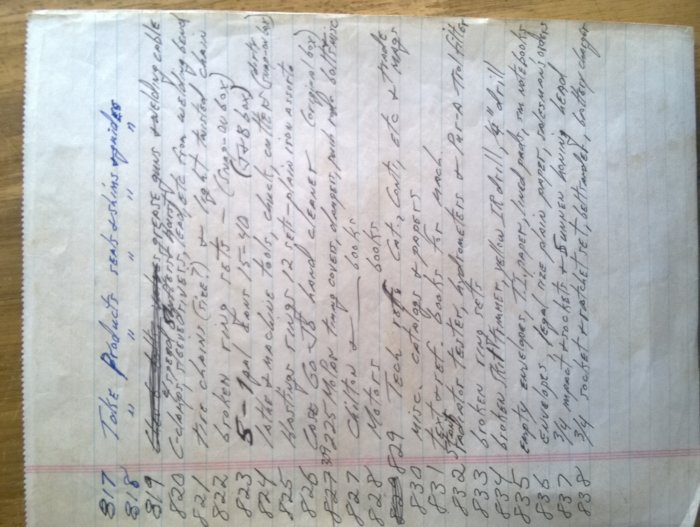 817 Take Products seat + shims + guides
818 " " " " "
819 grease guns + welding cable
820 C-clamps, speed etc from welding bench
821 tire chains (tree?) + light twisted chain
822 broken ring sets - (snap-on box)
823 5-1 gal cans 15-40 (box)
824 lathe + machine tools, chuck, cutters (snap-on box)
825 Hastings rings 12 sets-plain iron assorts
826 Case Go-Jo hand cleaner (original box)
827 225 motor covers, damper, push rods, bolts, misc
827 Chilton + books
828 Motors books
829 Tech Cat., Cont., etc + trade mags
830 Misc. catalogs + papers
831 text + ref. books for mach.
832 transistor tester, hydrometers + Par-A trak filter
833 broken ring sets
834 broken trimmer, yellow IR drill, 1/4" drill
835 empty envelopes, T.I. paper, lined pads, sm notebooks
836 envelopes, legal size plain paper, salesmans orders
837 3/4 impact + sockets + Sunnen honing head
838 3/4 socket + ratchet set, belt sander, battery charger